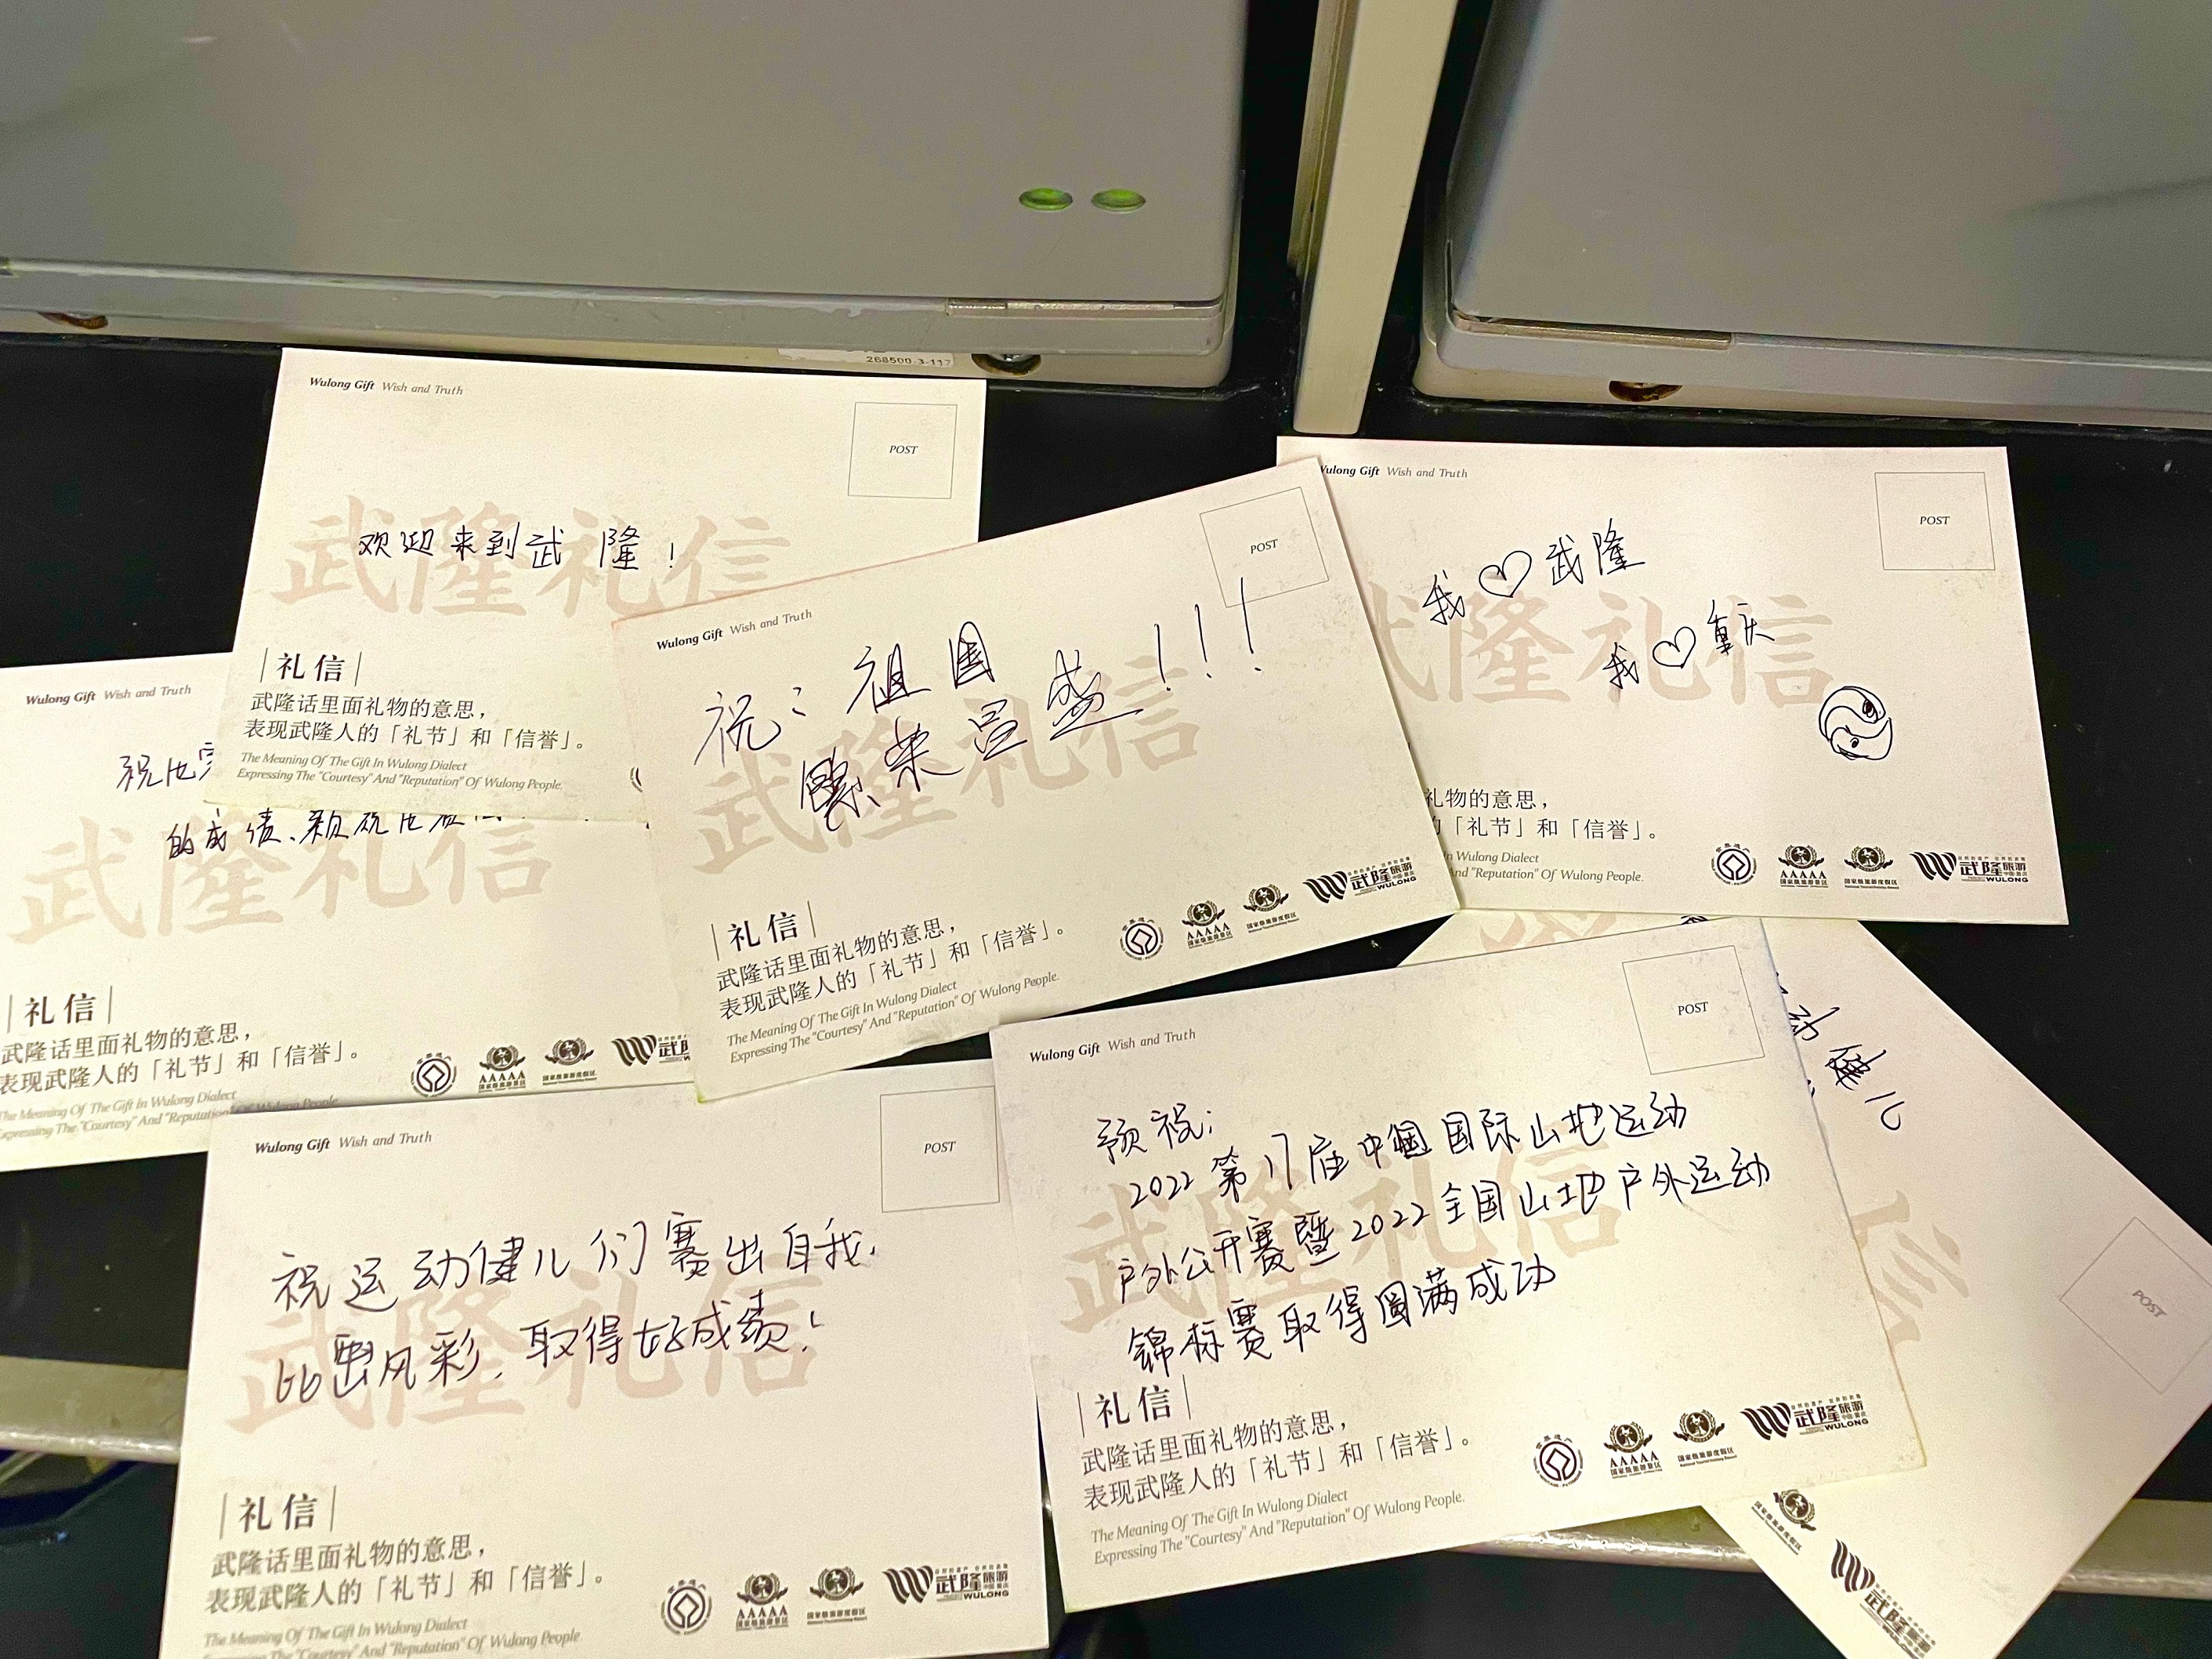 268500-3-117
Wulong Gift Wish and Truth
POST
武隆礼信
欢迎来到武隆！
礼信
武隆话里面礼物的意思，
表现武隆人的「礼节」和「信誉」。
The Meaning Of The Gift In Wulong Dialect
Expressing The "Courtesy" And "Reputation" Of Wulong People.
Wulong Gift Wish and Truth
POST
我♡武隆
我♡重庆
武隆礼信
礼物的意思，
「礼节」和「信誉」。
In Wulong Dialect
And "Reputation" Of Wulong People.
AAAAA
国家级旅游景区
国家级旅游度假区
武隆旅游
WULONG
Wulong Gift Wish and Truth
POST
祝：祖国
繁荣昌盛！！！
武隆礼信
礼信
武隆话里面礼物的意思，
表现武隆人的「礼节」和「信誉」。
The Meaning Of The Gift In Wulong Dialect
Expressing The "Courtesy" And "Reputation" Of Wulong People.
AAAAA
国家级旅游景区
国家级旅游度假区
武隆旅游
WULONG
Wulong Gift Wish and Truth
祝他
的成绩、
武隆礼信
礼信
武隆话里面礼物的意思，
表现武隆人的「礼节」和「信誉」。
The Meaning Of The Gift In Wulong Dialect
Expressing The "Courtesy" And "Reputation" Of Wulong People.
AAAAA
国家级旅游景区
武
Wulong Gift Wish and Truth
POST
祝运动健儿们赛出自我，
比出风彩，取得好成绩！
武隆礼信
礼信
武隆话里面礼物的意思，
表现武隆人的「礼节」和「信誉」。
The Meaning Of The Gift In Wulong Dialect
Expressing The "Courtesy" And "Reputation" Of Wulong People
AAAAA
国家级旅游景区
国家级旅游度假区
武隆旅游
WULONG
Wulong Gift Wish and Truth
POST
预祝：
2022第17届中国国际山地运动
户外公开赛暨2022全国山地户外运动
锦标赛取得圆满成功
武隆礼信
礼信
武隆话里面礼物的意思，
表现武隆人的「礼节」和「信誉」。
The Meaning Of The Gift In Wulong Dialect
Expressing The "Courtesy" And "Reputation" Of Wulong People.
AAAAA
国家级旅游景区
国家级旅游度假区
武隆旅游
WULONG
动健儿
POST
信
武隆旅游
WULONG